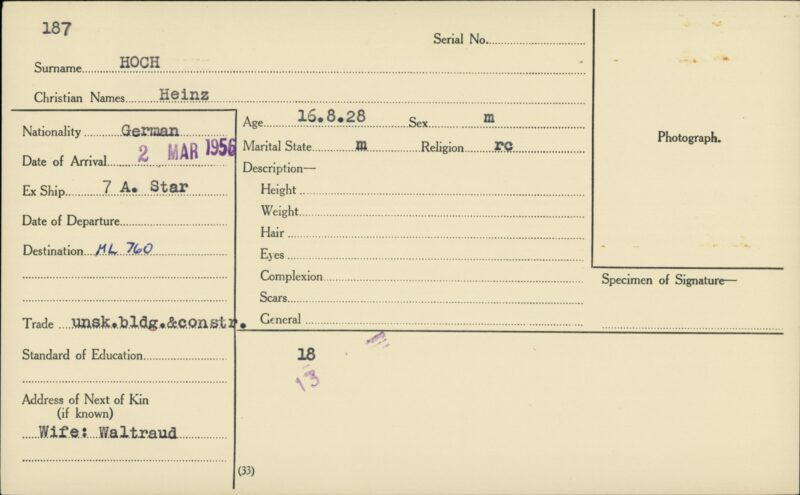 187
Serial No.
Surname HOCH
Christian Names Heinz
Nationality German
Date of Arrival 2 MAR 1956
Ex Ship 7 A. Star
Date of Departure
Destination ML 760
Trade unsk.bldg.&constr.
Standard of Education
Address of Next of Kin
(if known)
Wife: Waltraud
Age 16.8.28 Sex m
Marital State m Religion rc
Description—
Height
Weight
Hair
Eyes
Complexion
Scars
General
18
13
(33)
Photograph.
Specimen of Signature—